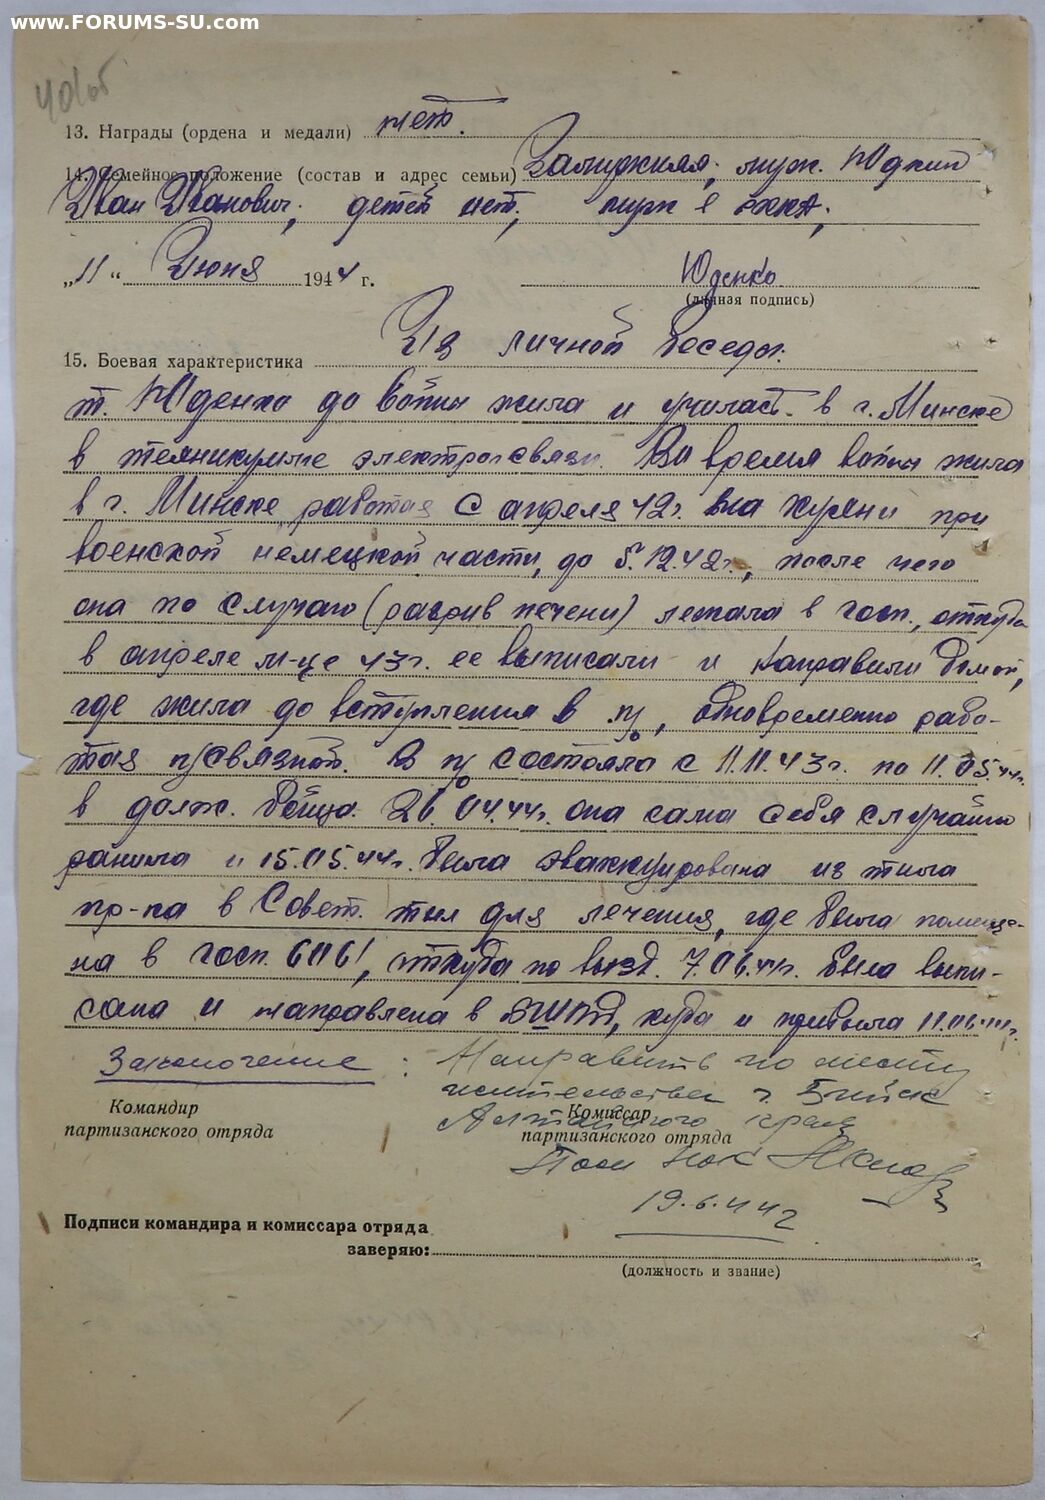 www.FORUMS-SU.com
401об
13. Награды (ордена и медали) нет.
14. Семейное положение (состав и адрес семьи) Замужняя; муж. Юдкин
Иван Иванович; детей нет; муж в РККА;
„11“ Июня 1944 г. Юденко
(личная подпись)
15. Боевая характеристика Из личной беседы:
т. Юденко до войны жила и училась в г. Минске
в техникумме электросвязи. Во время войны жила
в г. Минске работая с апреля 42г. на кухни при
военской немецкой части, до 5.12.42г., после чего
она по случаю (разрив печени) лежала в госп., откуда
в апреле м-це 43г. ее выписали и направили домой,
где жила до вступления в п/о, одновременно рабо-
тая п/связной. В п/о состояла с 11.11.43г. по 11.05.44г.
в долж. бойца. 26.04.44г. она сама себя случайно
ранила и 15.05.44г. была эваккуирована из тыла
пр-ка в Совет. тыл для лечения, где была помеще-
на в госп. 6061, откуда по вызд. 7.06.44г. была выпи-
сана и направлена в БШПД, куда и прибыла 11.06.44г.
Заключение: Направить по месту
жительства г. Бийск
Командир Комиссар
Алтайского края
партизанского отряда партизанского отряда
Пом нок
19.6.44г
Подписи командира и комиссара отряда
заверяю:
(должность и звание)